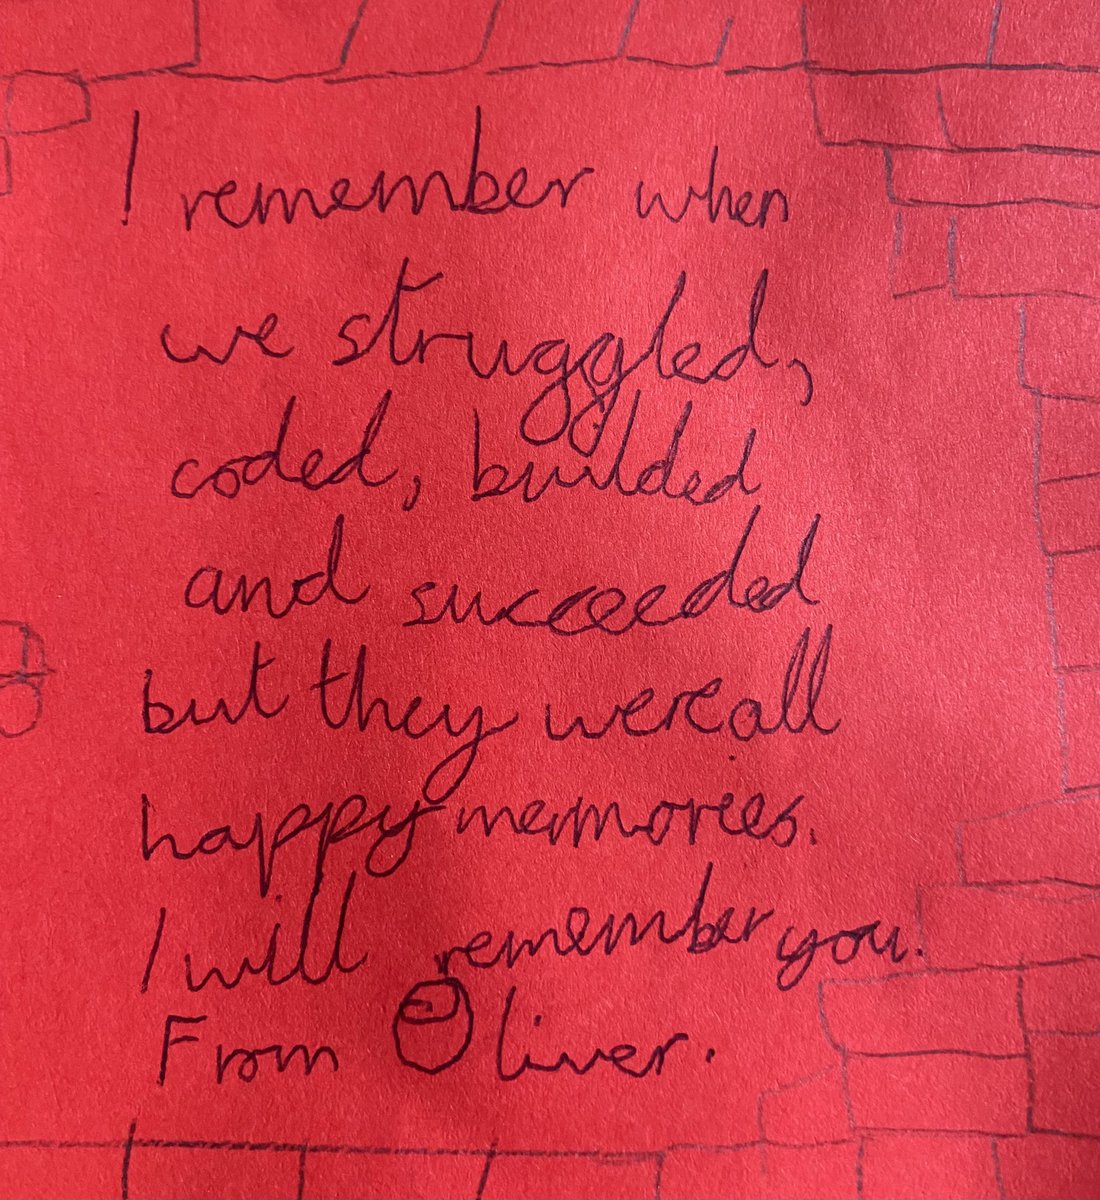 I remember when
we struggled,
coded, builded
and succeeded
but they were all
happy memories.
I will remember you.
From Oliver.